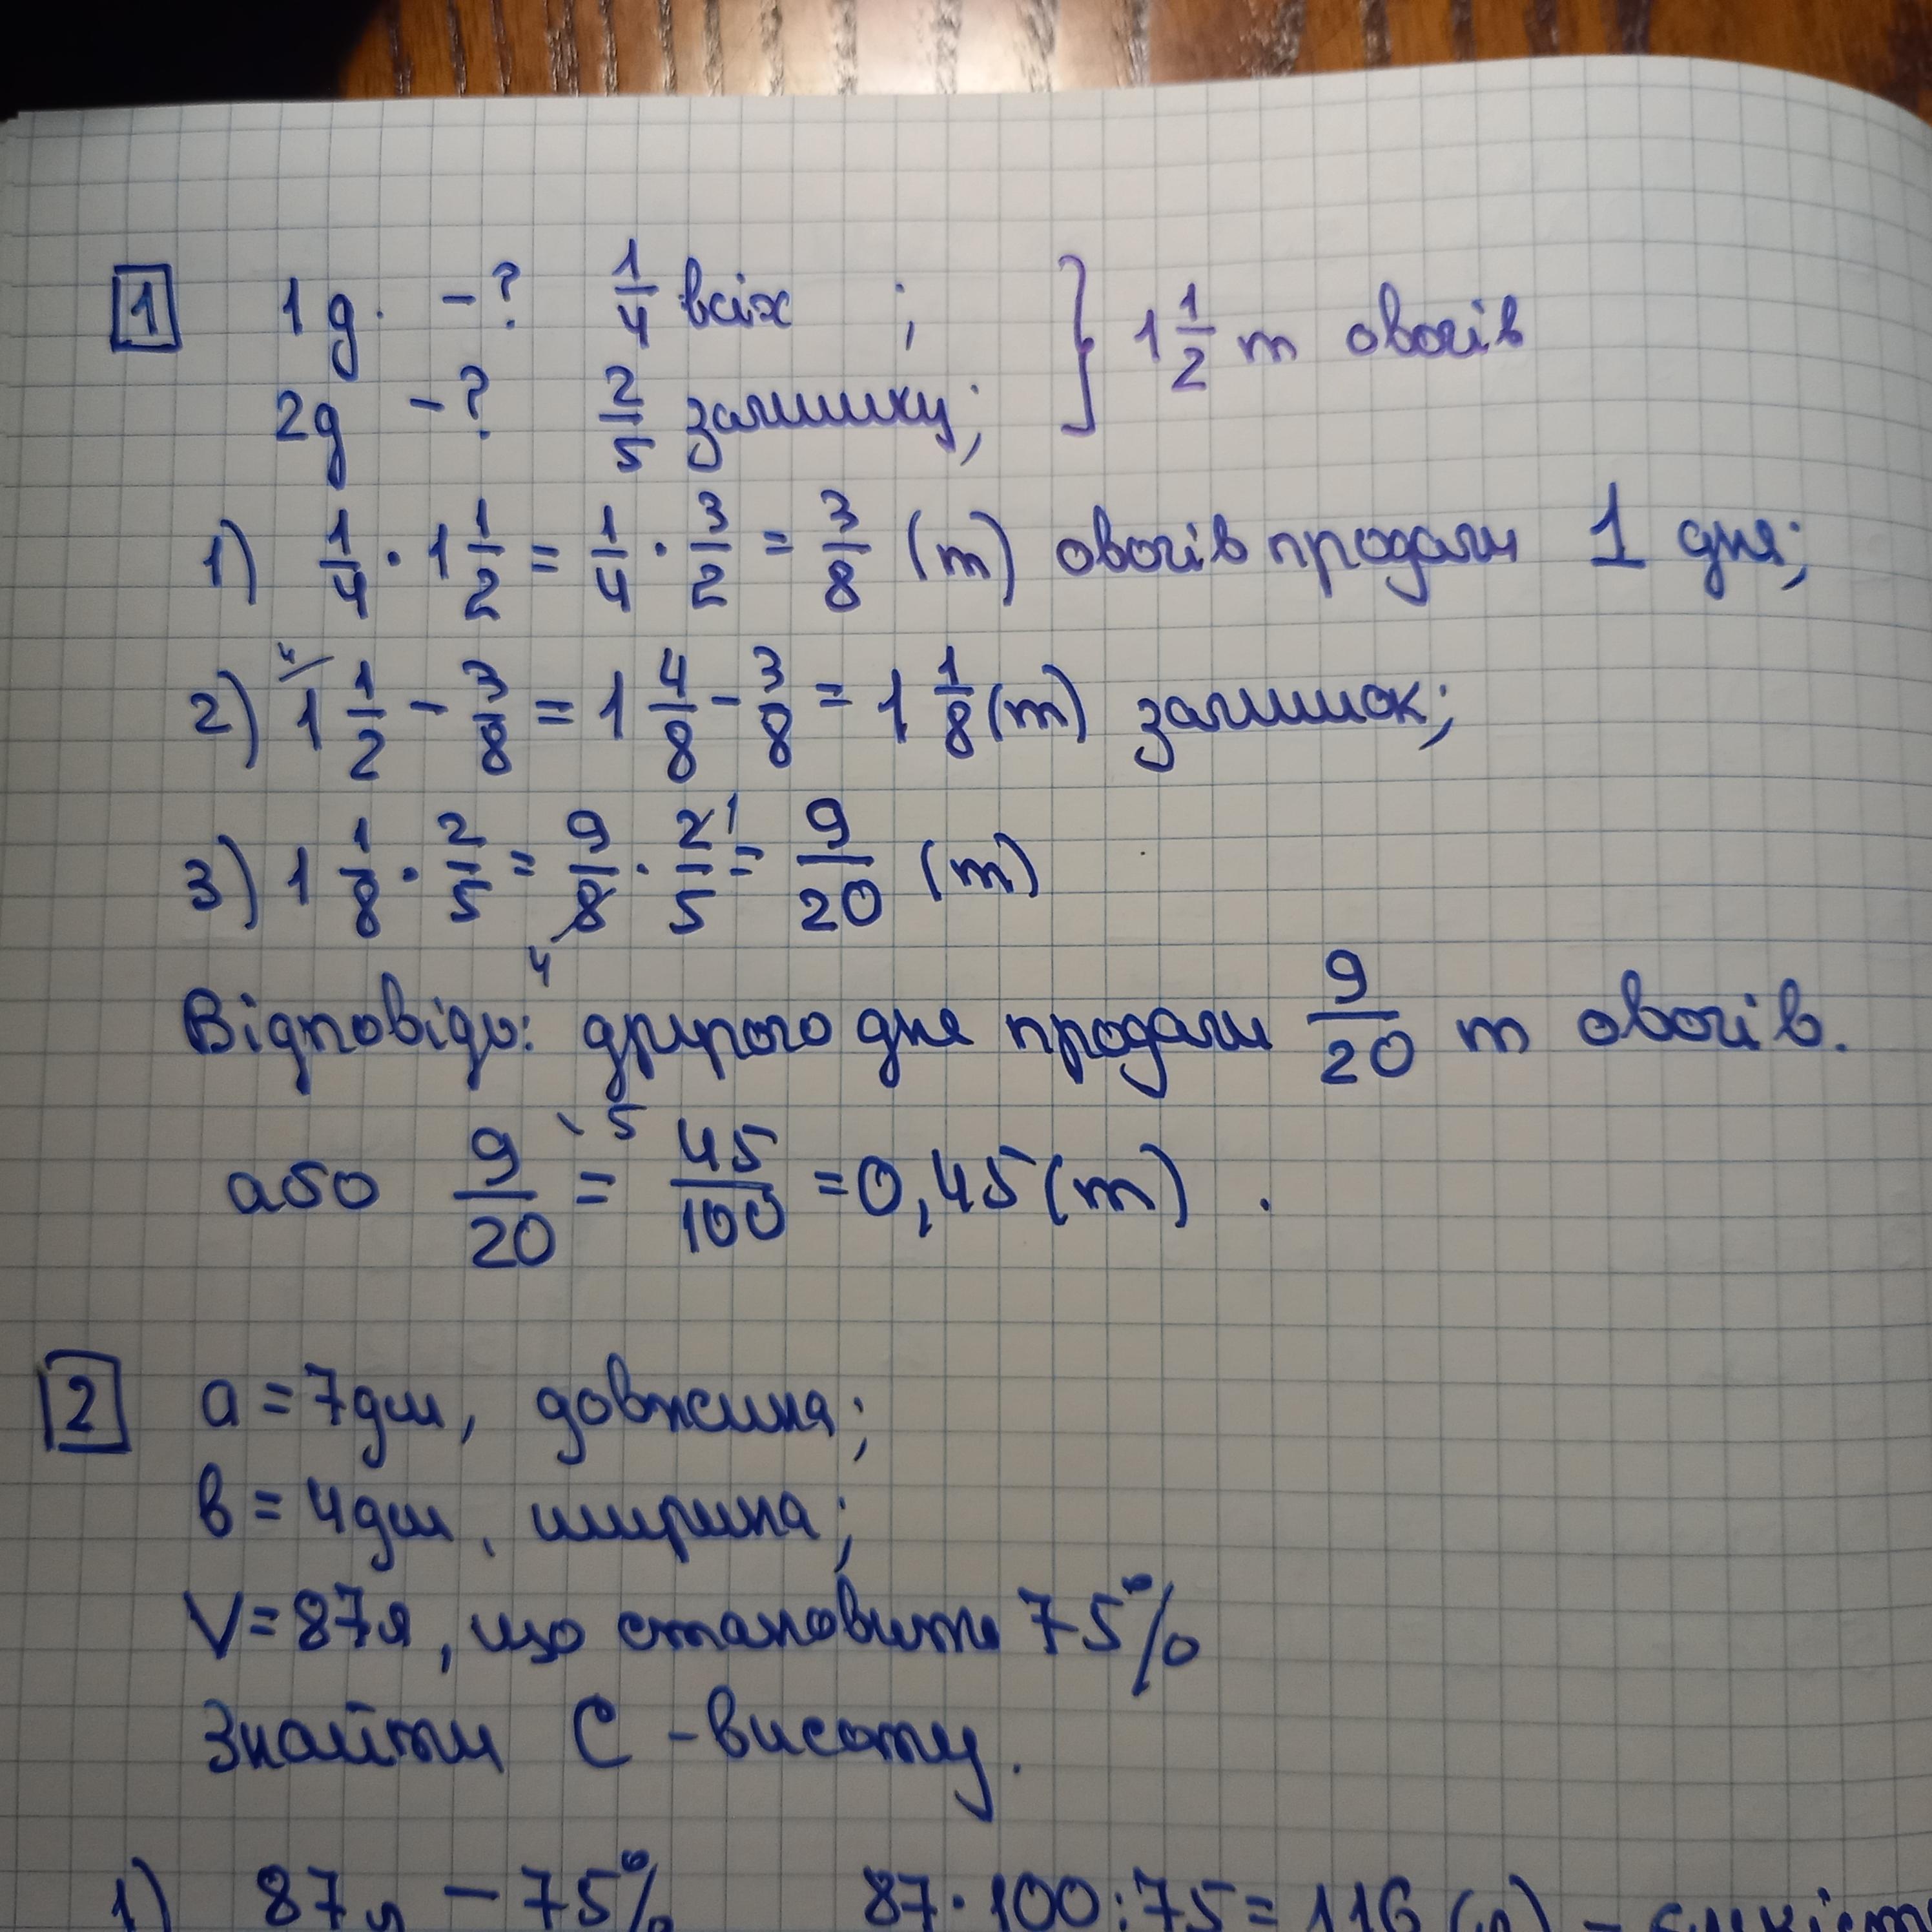 1 1д. -? 1/4 всіх ; } 1 1/2 т овочів
2д -? 2/5 залишку;
1) 1/4 · 1 1/2 = 1/4 · 3/2 = 3/8 (т) овочів продали 1 дня;
2) 4/ 1 1/2 - 3/8 = 1 4/8 - 3/8 = 1 1/8 (т) залишок;
3) 1 1/8 · 2/5 = 9/8 · 2/5 = 9/20 (т)
4 1
Відповідь: другого дня продали 9/20 т овочів.
або 9/20 \5 = 45/100 = 0,45 (т) .
2 a = 7дм, довжина;
в = 4дм, ширина;
V = 87л, що становить 75%
Знайти С - висоту.
1) 87л - 75% 87·100:75 = 116 (л) -